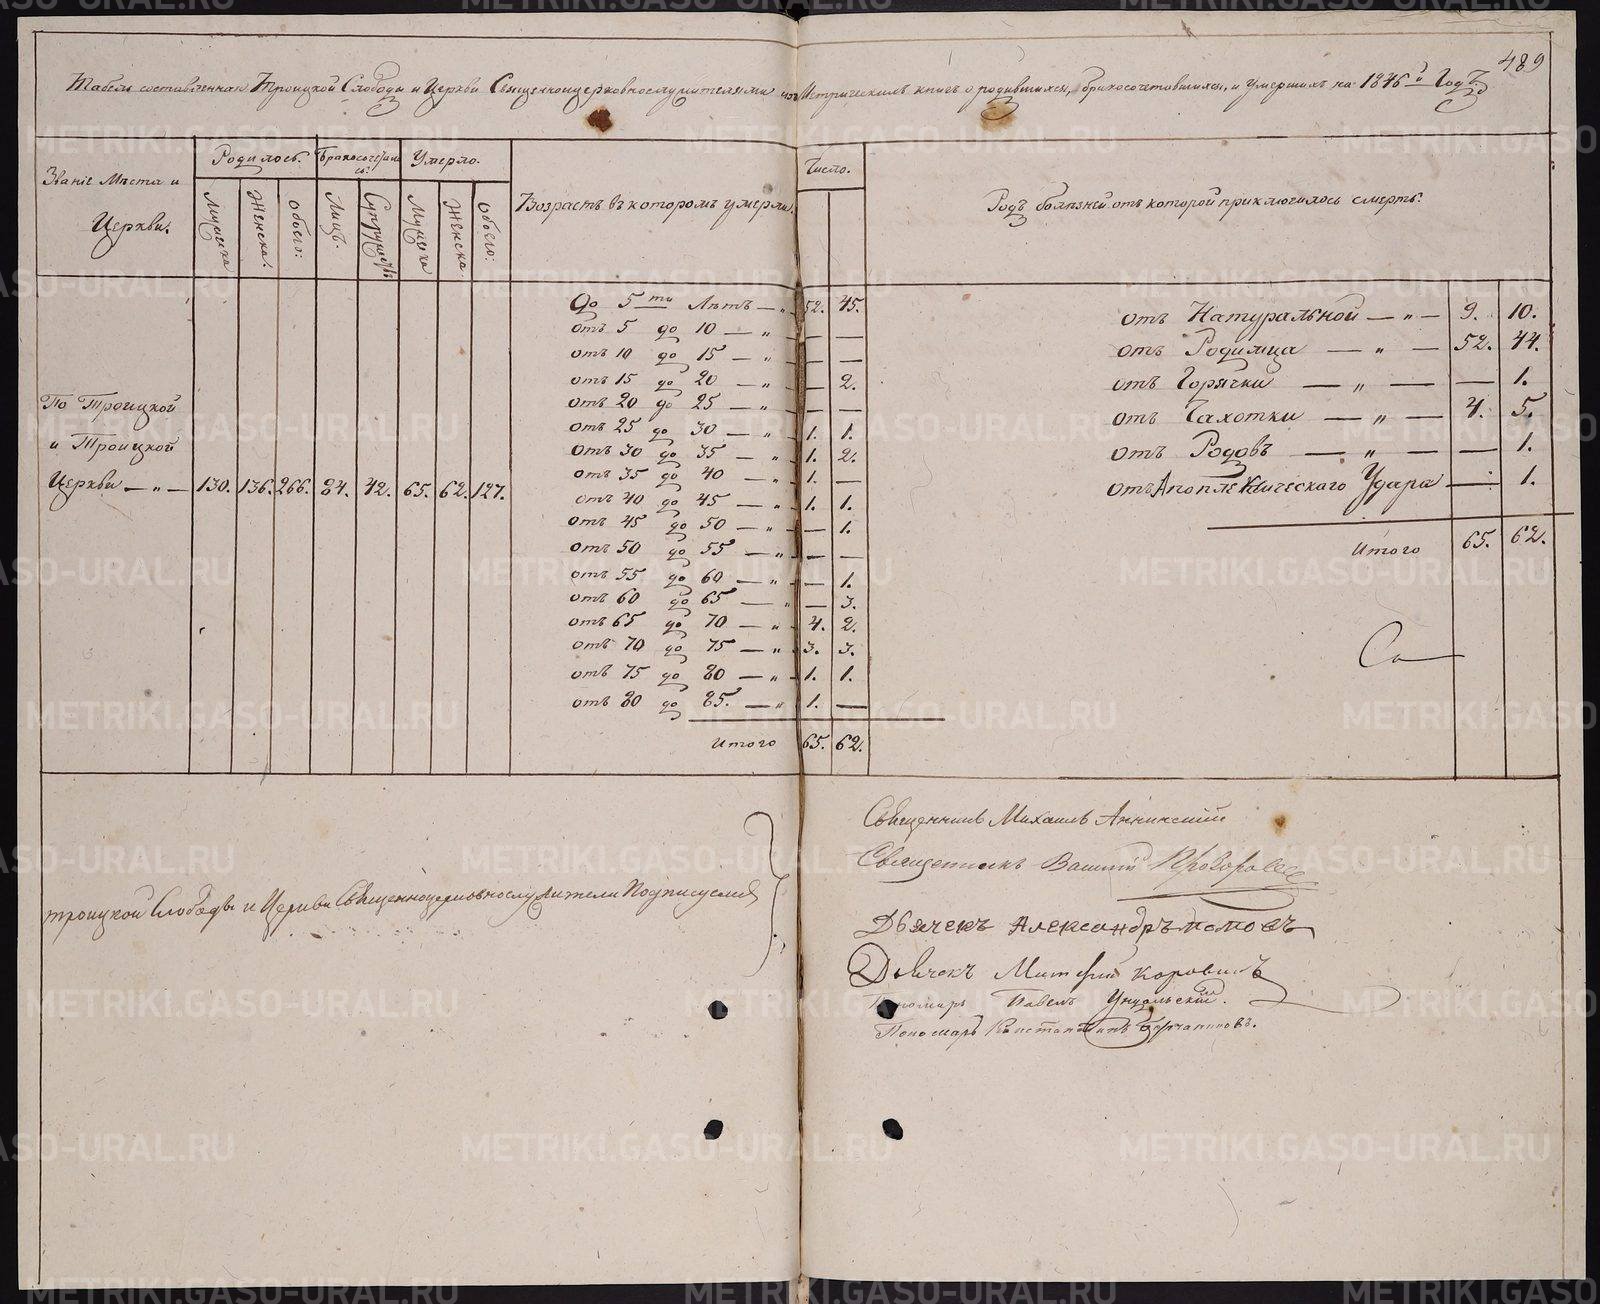 489
Табель составленная Троицкой Слободы и Церкви Священноцерковнослужителями изъ Метрическихъ книгъ о родившихся, бракосочетавшихся, и умершихъ на 1846й Годъ
Званіе Места и Церкви.
Родилось.
Бракосочетались:
Умерло.
Возрастъ въ которомъ умерли.
Число.
Родъ болѣзней отъ которой приключилось смерть.
Мужеска
Женска.
Обоего:
Лицъ.
Супружествъ
Мужеска
Женска
Обоего:
По Троицкой
и Троицкой
Церкви — „ — 130. 136. 266. 84. 42. 65. 62. 127.
До 5ти Лѣтъ — „ 52. 45.
отъ 5 до 10 — „ — —
отъ 10 до 15 — „ — —
отъ 15 до 20 — „ — 2.
отъ 20 до 25 — „ — —
отъ 25 до 30 — „ 1. 1.
отъ 30 до 35 — „ 1. 2.
отъ 35 до 40 — „ 1. —
отъ 40 до 45 — „ 1. 1.
отъ 45 до 50 — „ — 1.
отъ 50 до 55 — „ — —
отъ 55 до 60 — „ — 1.
отъ 60 до 65 — „ — 3.
отъ 65 до 70 — „ 4. 2.
отъ 70 до 75 — „ 3. 3.
отъ 75 до 80 — „ 1. 1.
отъ 80 до 85. — „ 1. —
Итого 65. 62.
отъ Натуральной — „ — 9. 10.
отъ Родимца — „ — 52. 44.
отъ Горячки — „ — — 1.
отъ Чахотки — „ — 4. 5.
отъ Родовъ — „ — — 1.
отъ Апоплексическаго Удара — 1.
Итого 65. 62.
Троицкой Слободы и Церкви Священноцерковнослужители Подписуемся
Священникъ Михаилъ Аннинскій
Священникъ Василій
Дьячекъ Александръ Поповъ
Дьячекъ Митрофанъ Коровинъ
Пономарь Павелъ Ундольскій.
Пономарь Константинъ
METRIKI.GASO-URAL.RU